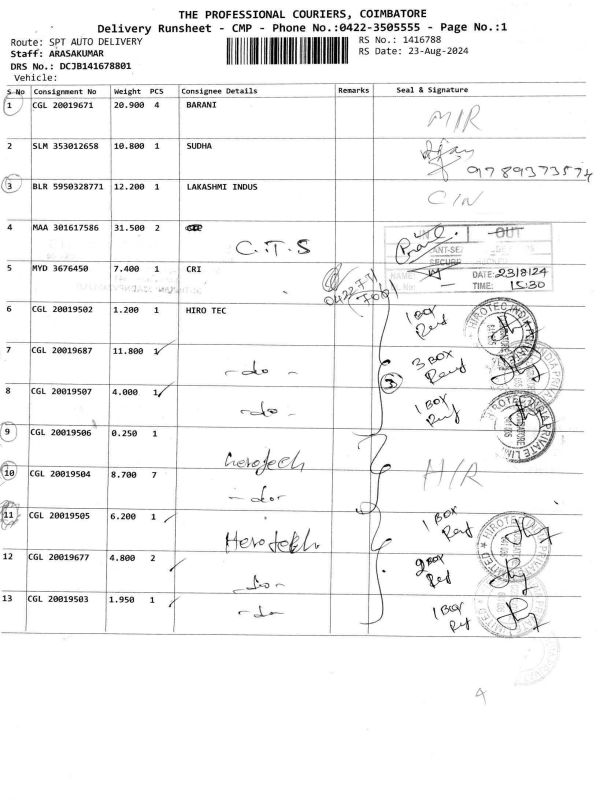 THE PROFESSIONAL COURIERS, COIMBATORE
Delivery Runsheet - CMP - Phone No.:0422-3505555 - Page No.:1
Route: SPT AUTO DELIVERY
RS No.: 1416788
Staff: ARASAKUMAR
RS Date: 23-Aug-2024
DRS No.: DCJB141678801
Vehicle:
S No Consignment No Weight PCS Consignee Details Remarks Seal & Signature
1 CGL 20019671 20.900 4 BARANI
M/R
2 SLM 353012658 10.800 1 SUDHA
9789373574
3 BLR 5950328771 12.200 1 LAKASHMI INDUS
C/N
4 MAA 301617586 31.500 2
C.T.S
IN OUT
5 MYD 3676450 7.400 1 CRI
DATE: 23/8/24
TIME: 15:30
6 CGL 20019502 1.200 1 HIRO TEC
1 BOX
7 CGL 20019687 11.800 1
- do -
3 BOX
8 CGL 20019507 4.000 1
- do -
1 BOX
9 CGL 20019506 0.250 1
herotech
10 CGL 20019504 8.700 7
- do -
H/R
11 CGL 20019505 6.200 1
Herotekh
1 BOX
12 CGL 20019677 4.800 2
- do -
2 BOX
13 CGL 20019503 1.950 1
- do -
1 BOX
4